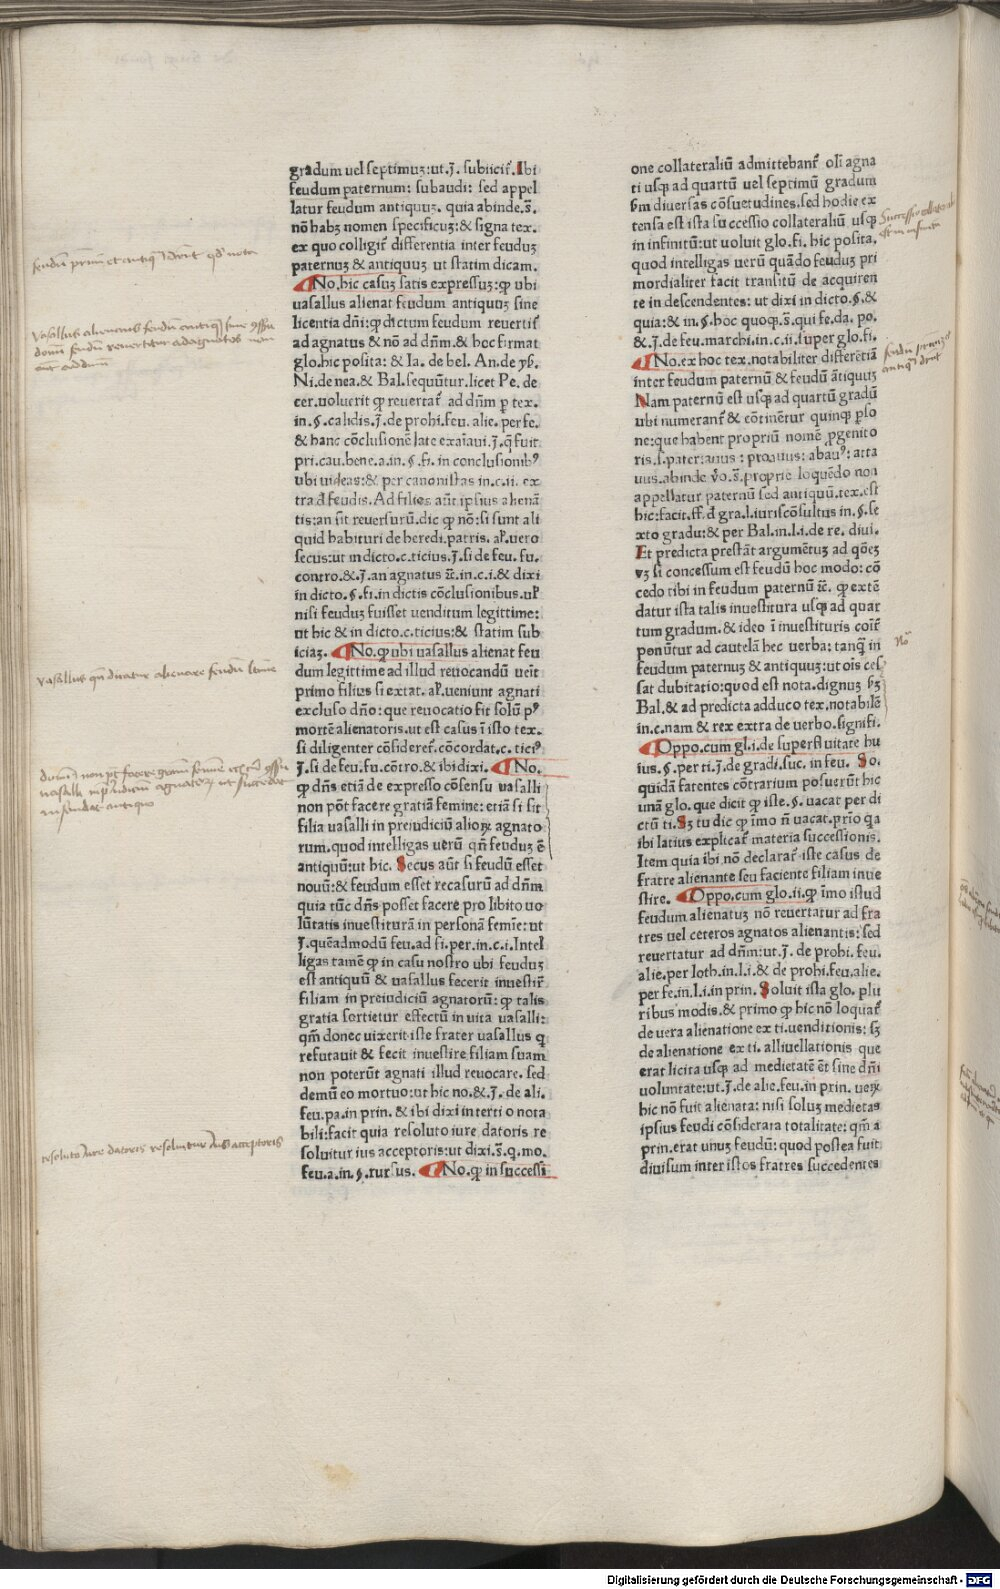 gradum uel septimuz:ut.J. subiicit᷑. Ibi
feudum paternum: subaudi: sed appel
latur feudum antiquuz. quia abinde.s̄.
nō habz nomen specificuz:& signa tex.
ex quo colligit᷑ differentia inter feuduz
paternuz & antiquuz ut statim dicam.
¶No.hic casuz satis expressuz:ꝙ ubi
uasallus alienat feudum antiquuz sine
licentia dñi:ꝙ dictum feudum reuertit᷑
ad agnatus & nō ad dñm.& hoc firmat
glo.hic posita: & Ia. de bel. An.de yß.
Ni.de nea.& Bal.sequūtur.licet Pe. de
cer.uoluerit ꝙ reuertat᷑ ad dñm ꝑ tex.
in.§.calidis.J.de prohi.feu. alie. per fe.
& hanc cōclusionē late exaīaui.J.q̄ fuit
pri.cau.bene.a.in.§.fi.in conclusionibꝰ
ubi uideas:& per canonistas in.c.ii. ex
tra đ feudis. Ad filios aūt ipsius alienā
tis:an sit reuersurū.dic ꝙ nō:si sunt ali
quid habituri de heredi.patris. al᷑.uero
secus:ut in dicto.c.ticius.J.si de feu. fu.
contro.&.J.an agnatus ⁊c̄.in.c.i.& dixi
in dicto.§.fi.in dictis cōclusionibus.ul᷑
nisi feuduz fuisset uenditum legittime:
ut hic & in dicto.c.ticius:& statim sub
iciaz. ¶No.ꝙ ubi uasallus alienat feu
dum legittime ad illud reuocandū ueīt
primo filius si extat. al᷑.ueniunt agnati
excluso dño: que reuocatio fit solū pꝰ
mortē alienatoris.ut est casus ī isto tex.
si diligenter cōsideret᷑.cōcordat.c. ticiꝰ
J.si de feu.fu.cōtro.& ibi dixi. ¶No.
ꝙ dñs etiā de expresso cōsensu uasalli
non pōt facere gratiā femine: etiā si sit
filia uasalli in preiudiciū alioꝝ agnato
rum.quod intelligas uerū qñ feuduz ē
antiquū:ut hic. Secus aūt si feudū esset
nouū:& feudum esset recasurū ad dñm
quia tūc dñs posset facere pro libito uo
lūtatis inuestiturā in personā femīe: ut
J.quēadmodū feu.ad fi.per.in.c.i.Intel
ligas tamē ꝙ in casu nostro ubi feuduz
est antiquū & uasallus fecerit inuestir᷑
filiam in preiudiciū agnatorū: ꝙ talis
gratia sortietur effectū in uita uasalli:
qm̄ donec uixerit iste frater uasallus q
refutauit & fecit inuestire filiam suam
non poterūt agnati illud reuocare. sed
demū eo mortuo:ut hic no.&.J. de ali.
feu.pa.in prin. & ibi dixi in terti o nota
bili:facit quia resoluto iure datoris re
soluitur ius acceptoris:ut dixi.s̄.q.mo.
feu.a.in.§.rursus. ¶No.ꝙ in successi
one collateraliū admittebant᷑ oli agna
ti usq; ad quartū uel septimū gradum
ẜm diuersas cōsuetudines.sed hodie ex
tensa est ista successio collateraliū usq;
in infinitū:ut uoluit glo.fi. hic posita.
quod intelligas uerū quādo feuduz pri
mordialiter facit transitū de acquiren
te in descendentes: ut dixi in dicto.§.&
quia:& in.§.hoc quoq;.s̄.qui fe.da. po.
&.J.de feu.marchi.in.c.ii.super glo.fi.
¶No.ex hoc tex.notabiliter differētiā
inter feudum paternū & feudū ātiquuz
Nam paternū est usq; ad quartū gradū
ubi numerant᷑ & cōtinētur quinq; ꝑso
ne:que habent propriū nomē ꝓgenito
ris.s.pater:auus: proauus: abauꝰ: atta
uus.abinde v̊o.s̄.proprie loquēdo non
appellatur paternū sed antiquū.tex.est
hic:facit.ff.đ gra.l.iuriscōsultus in.§.se
xto gradu:& per Bal.in.l.i.de re. diui.
Et predicta prestāt argumētuz ad qōez
vz si concessum est feudū hoc modo: cō
cedo tibi in feudum paternū ⁊c̄. ꝙ extē
datur ista talis inuestitura usq; ad quar
tum gradum.& ideo ī inuestituris coīt᷑
ponūtur ad cautelā hec uerba: tanq̄ in
feudum paternuz & antiquuz:ut oīs ces
sat dubitatio:quod est nota.dignuz ẜz
Bal.& ad predicta adduco tex.notabilē
in.c.nam & rex extra de uerbo.signifi.
¶Oppo.cum gl.i.de superfluitate hu
ius.§.per ti.J.de gradi.suc.in feu. So.
quidā fatentes cōtrarium posuerūt hic
unā glo. que dicit ꝙ iste.§. uacat per di
ctū ti. Sz tu dic ꝙ īmo ñ uacat.prīo q̄a
ibi latius explicat᷑ materia successionis.
Item quia ibi nō declarat᷑ iste casus de
fratre alienante seu faciente filiam inue
stire. ¶Oppo.cum glo.ii.ꝙ īmo istud
feudum alienatuz nō reuertatur ad fra
tres uel ceteros agnatos alienantis: sed
reuertatur ad dñm:ut.J. de prohi. feu.
alie.per loth.in.l.i.& de prohi.feu.alie.
per fe.in.l.i.in prin. Soluit ista glo. plu
ribus modis.& primo ꝙ hic nō loquat᷑
de uera alienatione ex ti.uenditionis: sz
de alienatione ex ti. alliuellationis que
erat licita usq; ad medietatē ēt sine dñi
uoluntate:ut.J.de alie.feu.in prin. ueꝝ
hic nō fuit alienata: nisi soluz medietas
ipsius feudi cōsiderata totalitate: qm̄ a
prin.erat unuz feudū: quod postea fuit
diuisum inter istos fratres succedentes
Vasallus alienans feudū antiquū sine
resoluto iure datoris resoluitur ius acceptoris
Digitalisierung gefördert durch die Deutsche Forschungsgemeinschaft - DFG